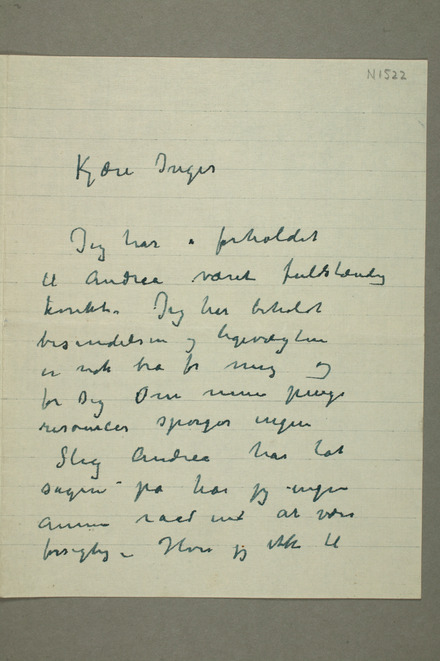 N1522
Kjære Inger
Jeg har i forholdet
til Andrea været fuldstændig
korrekt. Jeg har beholdt
besindelsen og ligevægten
er nok bra for mig og
for dig Om mine penge
resourcer spørger ingen
Slig Andrea har lat
sagen på har jeg ingen
annen raad end at være
forsigtig – Hvis jeg ikke til